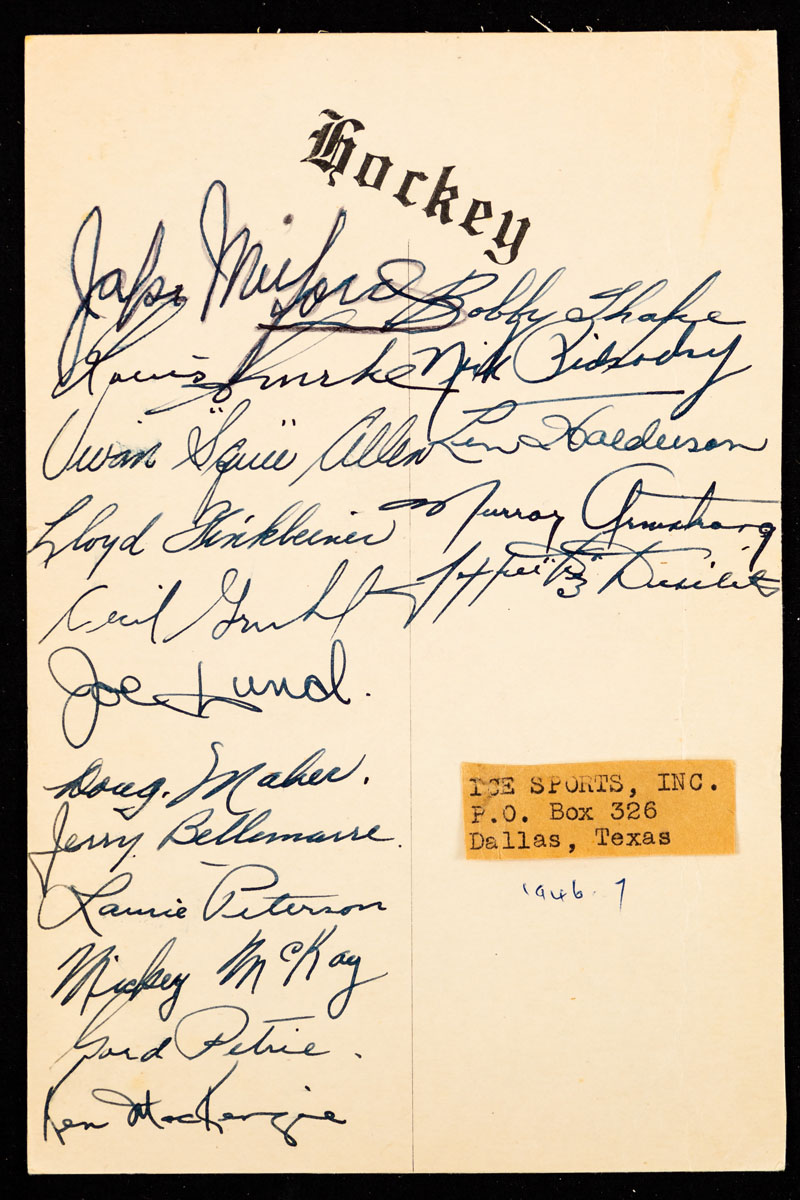 Hockey
Jake Milford
Louis
Vivan "Squee" Allen
Lloyd Finkbeiner
Cecil Gruhl
Joe Lund.
Doug. Maher.
Jerry Bellemarre.
Laurie Peterson
Mickey McKay
Gord Petrie.
Ken MacKenzie
Bobby Thake
Nick Pidsodny
Len Halderson
Murray Armstrong
"Bz"
ICE SPORTS, INC.
P.O. Box 326
Dallas, Texas
1946-7